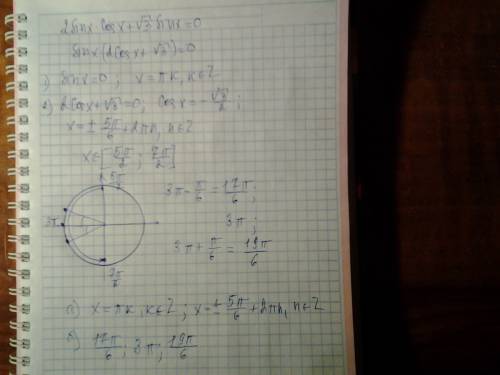 2sinx cosx+√3 sinx=0
sinx(2cosx+√3)=0
1) sinx=0; x=πk, k∈Z
2) 2cosx+√3=0; cosx=-√3/2;
x=±5π/6+2πn, n∈Z
x∈[5π/2; 7π/2]
5π/2
3π-π/6=17π/6;
3π
3π;
3π+π/6=19π/6
7π/2
а) x=πk, k∈Z; x=±5π/6+2πn, n∈Z
б) 17π/6; 3π; 19π/6